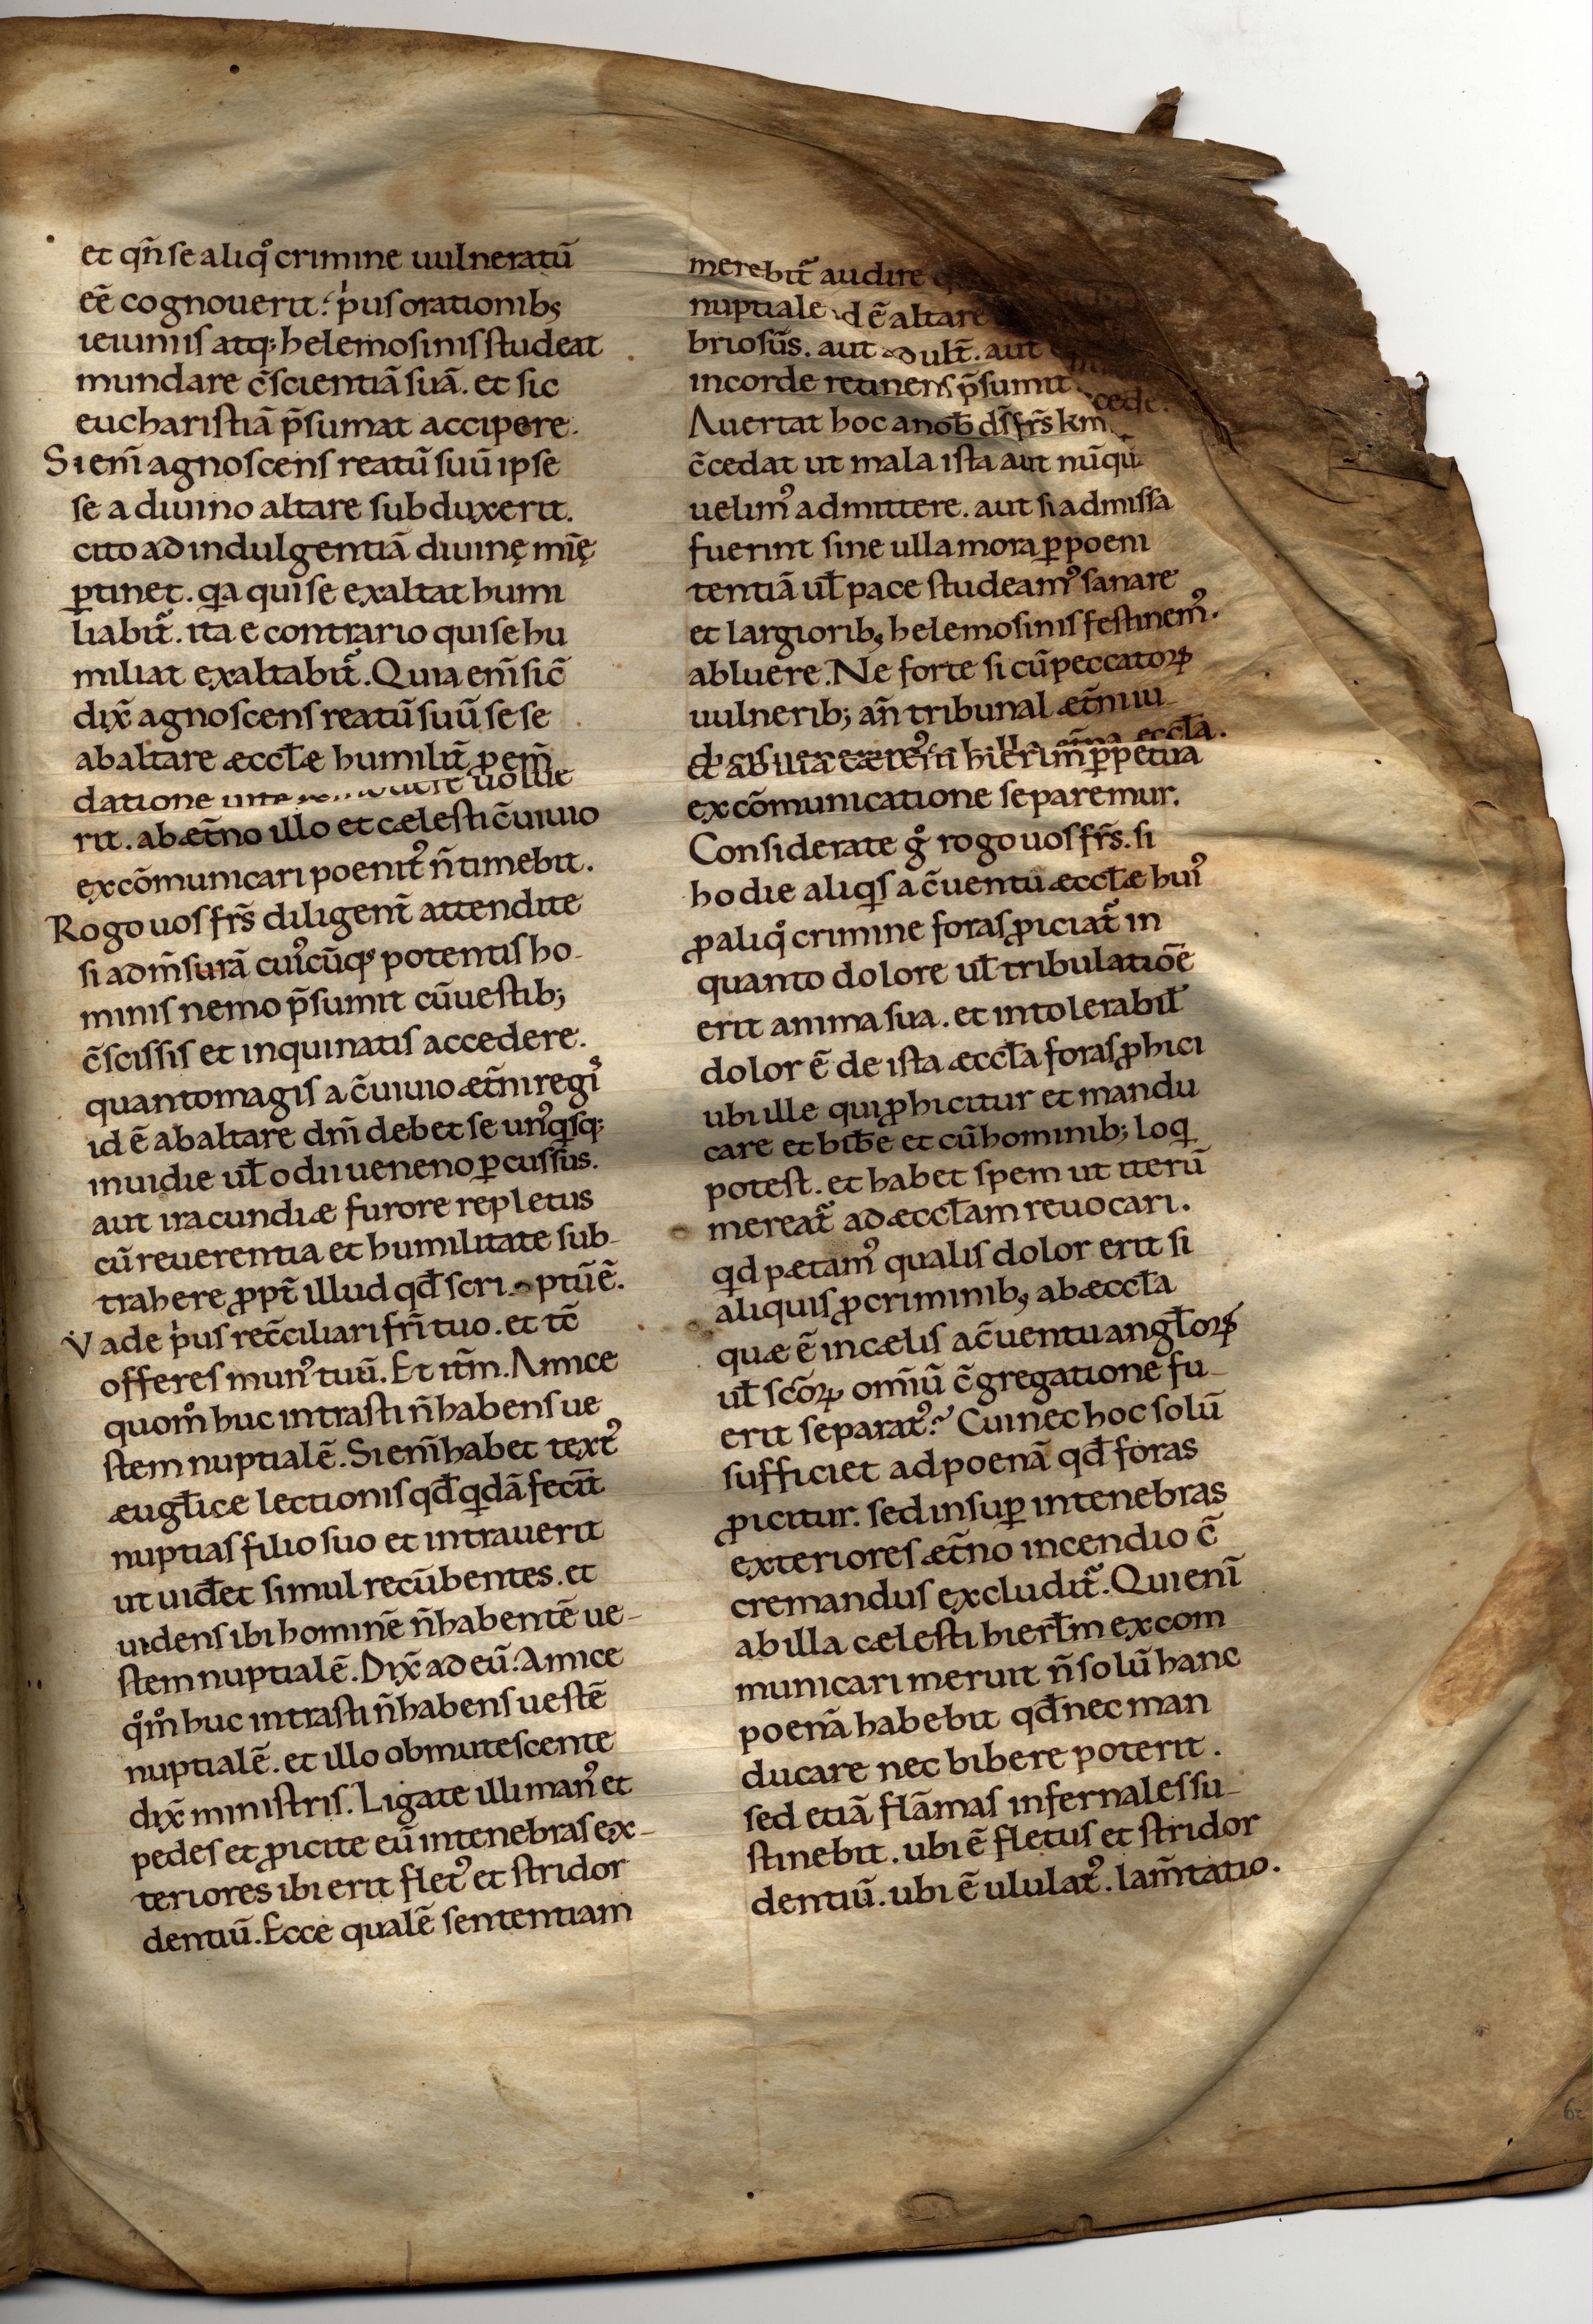 et qn̄ se aliqͦ crimine uulneratū
eē cognouerit. p̍us orationib;
ieiuniis atq; helemosinis studeat
mundare c̄scientiā suā. et sic
eucharistiā p̄sumat accipere.
Si eni̅ agnoscens reatū suū ipse
se a diuino altare subduxerit.
cito ad indulgentiā diuinę mīę
ꝑtinet. qa qui se exaltat humi
liabit̄. ita e contrario qui se hu
miliat exaltabit̄. Quia eni̅ sic̄
dix̄ agnoscens reatū suū se se
ab altare æccłæ humilit̄ ꝑ em̄
datione uolue
rit. ab æt̄no illo et cælesti c̄uiuio
excōmunicari poenit᾿ n̄ timebit.
Rogo uos frs̄ diligent̄ attendite
si ad m̄surā cui᾿cūq; potentis ho-
minis nemo p̄sumit cū uestib;
c̄scissis et inquinatis accedere.
quanto magis a c̄uiuio æt̄ni regi᾿
id ē ab altare dni̅ debet se un᾿qsq;
inuidie uł odii ueneno ꝑcussus.
aut iracundiæ furore repletus
cū reuerentia et humilitate sub-
trahere ꝓpt̄ illud qđ scri ptū ē.
Vade p̍us rec̄ciliari fri̅ tuo. et tc̄
offeres mun᾿ tuū. Et it̄m. Amice
quom̊ huc intrasti n̄ habens ue
stem nuptialē. Si eni̅ habet text᾿
æugłice lectionis qđ qdā fecit̄
nuptias filio suo et intrauerit
ut uiđet simul recūbentes. et
uidens ibi hominē n̄ habentē ue-
stem nuptialē. Dix̄ ad eū. Amice
qͦm̊ huc intrasti n̄ habens uestē
nuptialē. et illo obmutescente
dix̄ ministris. Ligate illi man᾿ et
pedes et ꝓicite eū in tenebras ex-
teriores ibi erit flet᾿ et stridor
dentiū. Ecce qualē sententiam
merebit̄ audire
nuptiale id ē altare
briosus̄. aut adult̄. aut
in corde retinens p̄sumit cede.
Auertat hoc a noƀ ds̄ frs̄ km
c̄cedat ut mala ista aut nūqu
uelim᾿ admittere. aut si admissa
fuerint sine ulla mora ꝑ poeni
tentiā uł pace studeam᾿ sanare
et largiorib; helemosinis festinem᾿.
abluere. Ne forte si cū peccatoꝝ
uulnerib; an̄ tribunal æt̄ni iu
æt̄na æccła.
hierłm ꝑpetua
excōmunicatione separemur.
Considerate gͦ rogo uos frs̄. si
hodie aliqs a c̄uentu æccłæ hui᾿
ꝓ aliqͦ crimine foras ꝓiciat̄ in
quanto dolore uł tribulatiōe
erit anima sua. et intolerabił
dolor ē de ista æccła foras ꝓhici
ubi ille qui ꝓhicitur et mandu
care et biƀe et cū hominib; loq
potest. et habet spem ut iterū
mereat̄ ad æccłam reuocari.
qd pætam᾿ qualis dolor erit si
aliquis ꝓ criminib; ab æccła
quæ ē in cælis a c̄uentu angłoꝝ
uł scōꝝ omi̅ū c̄gregatione fu-
erit separat᾿? Cui nec hoc solū
sufficiet ad poenā qđ foras
ꝓicitur. sed insuꝑ in tenebras
exteriores æt̄no incendio c̄
cremandus excludit̄. Qui eni̅
ab illa cælesti hierłm excom
municari meruit n̄ solū hanc
poenā habebit qđ nec man
ducare nec bibere poterit.
sed etiā flāmas infernales su-
stinebit. ubi ē fletus et stridor
dentiū. ubi ē ululat᾿. lam̄tatio.